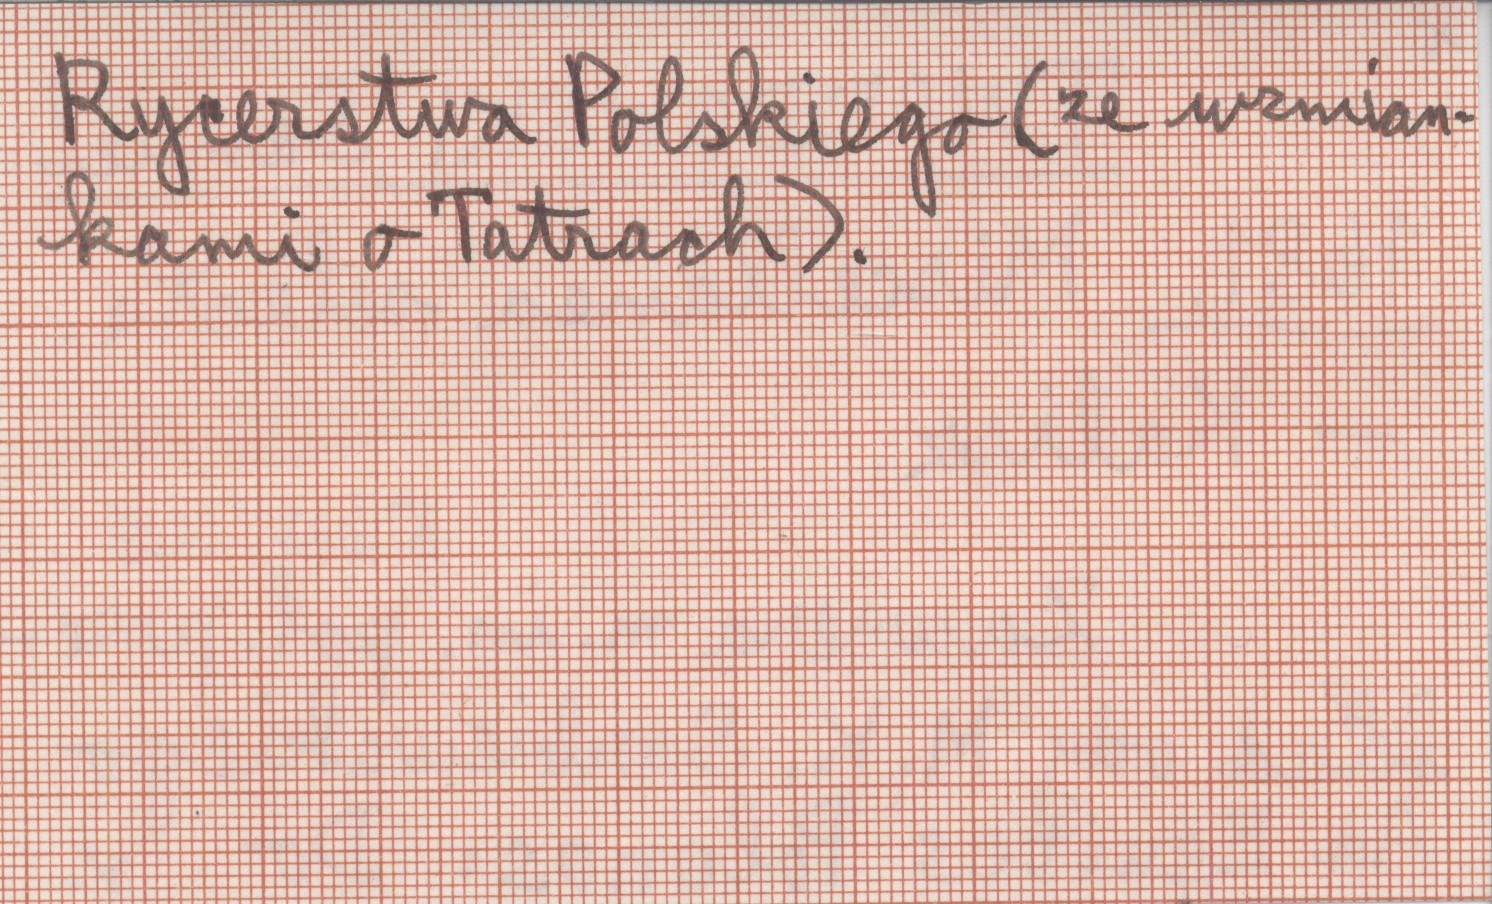 Rycerstwa Polskiego (ze wzmian-
kami o Tatrach).